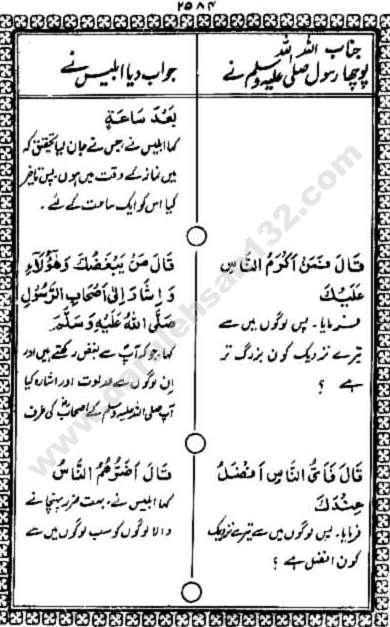 ۲۵۸۴
جناب اللہ اللہ
پوچھا رسول صلی علیہ وسلم نے
جواب دیا ابلیس نے
بَعْدَ سَاعَةٍ
کہا ابلیس نے جس نے جان لیا تحقیق کہ
میں نماز کے وقت میں ہوں، پس تاخیر
کیا اس کو ایک ساعت کے لئے ۔
قَالَ فَمَنْ اَكْرَمُ النَّاسِ
عَلَيْكَ
فرمایا ۔ پس لوگوں میں سے
تیرے نزدیک کون بزرگ تر
ہے ؟
قَالَ مَنْ يَبْغَضُكَ وَهٰؤُلَآءِ
وَاِشَارَ اِلٰى اَصْحَابِ الرَّسُوْلِ
صَلَّى اللّٰهُ عَلَيْهِ وَسَلَّمَ
کہا، جو کہ آپ سے بغض رکھتے ہیں اور
اِن لوگوں سے عداوت اور اشارہ کیا
آپ صلی اللہ علیہ وسلم کے اصحابؓ کی طرف
قَالَ فَاَىُّ النَّاسِ اَفْضَلُ
عِنْدَكَ
فرمایا ۔ پس لوگوں میں سے تیرے نزدیک
کون افضل ہے ؟
قَالَ اَضَرُّهُمُ النَّاسَ
کہا ابلیس نے ۔ بہت ضرر پہنچانے
والا لوگوں کو سب لوگوں میں سے